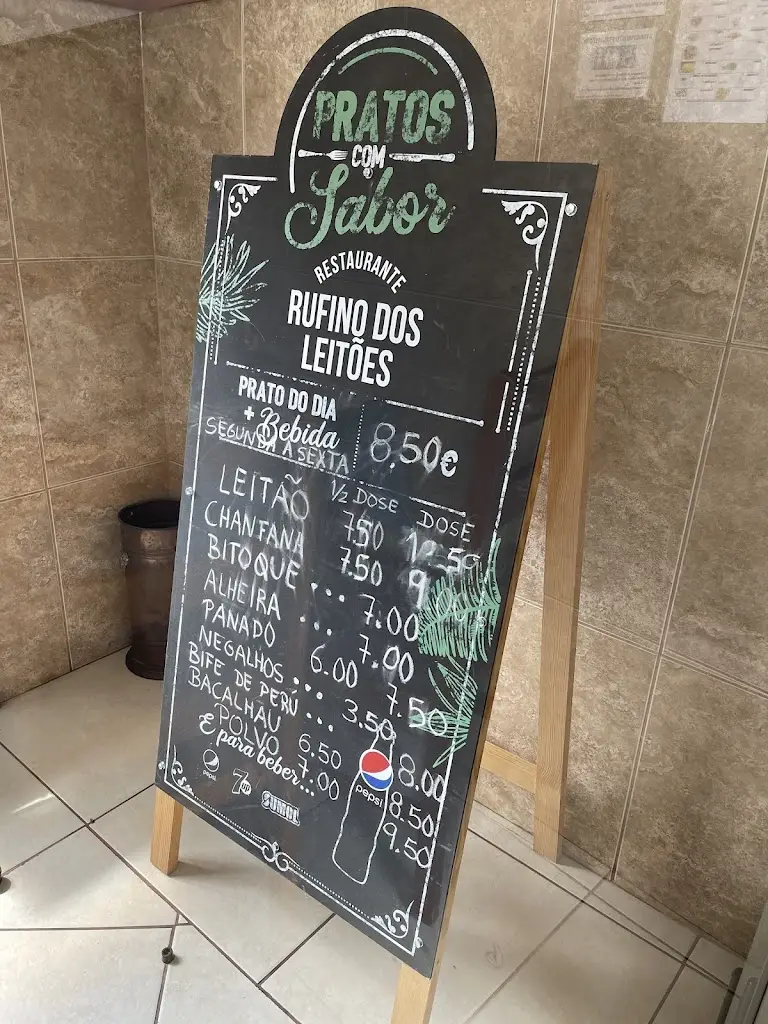 PRATOS
COM
Sabor
RESTAURANTE
RUFINO DOS
LEITÕES
PRATO DO DIA
+ Bebida
8.50€
SEGUNDA A SEXTA
½ DOSE DOSE
LEITÃO 7.50
CHANFANA 7.50 9.00
BITOQUE ... 7.00
ALHEIRA ... 7.00
PANADO 6.00 7.50
NEGALHOS ... 3.50
BIFE DE PERÚ ... 8.00
BACALHAU 6.50 8.50
POLVO 7.00 9.50
E para beber...
pepsi 7up SUMOL pepsi